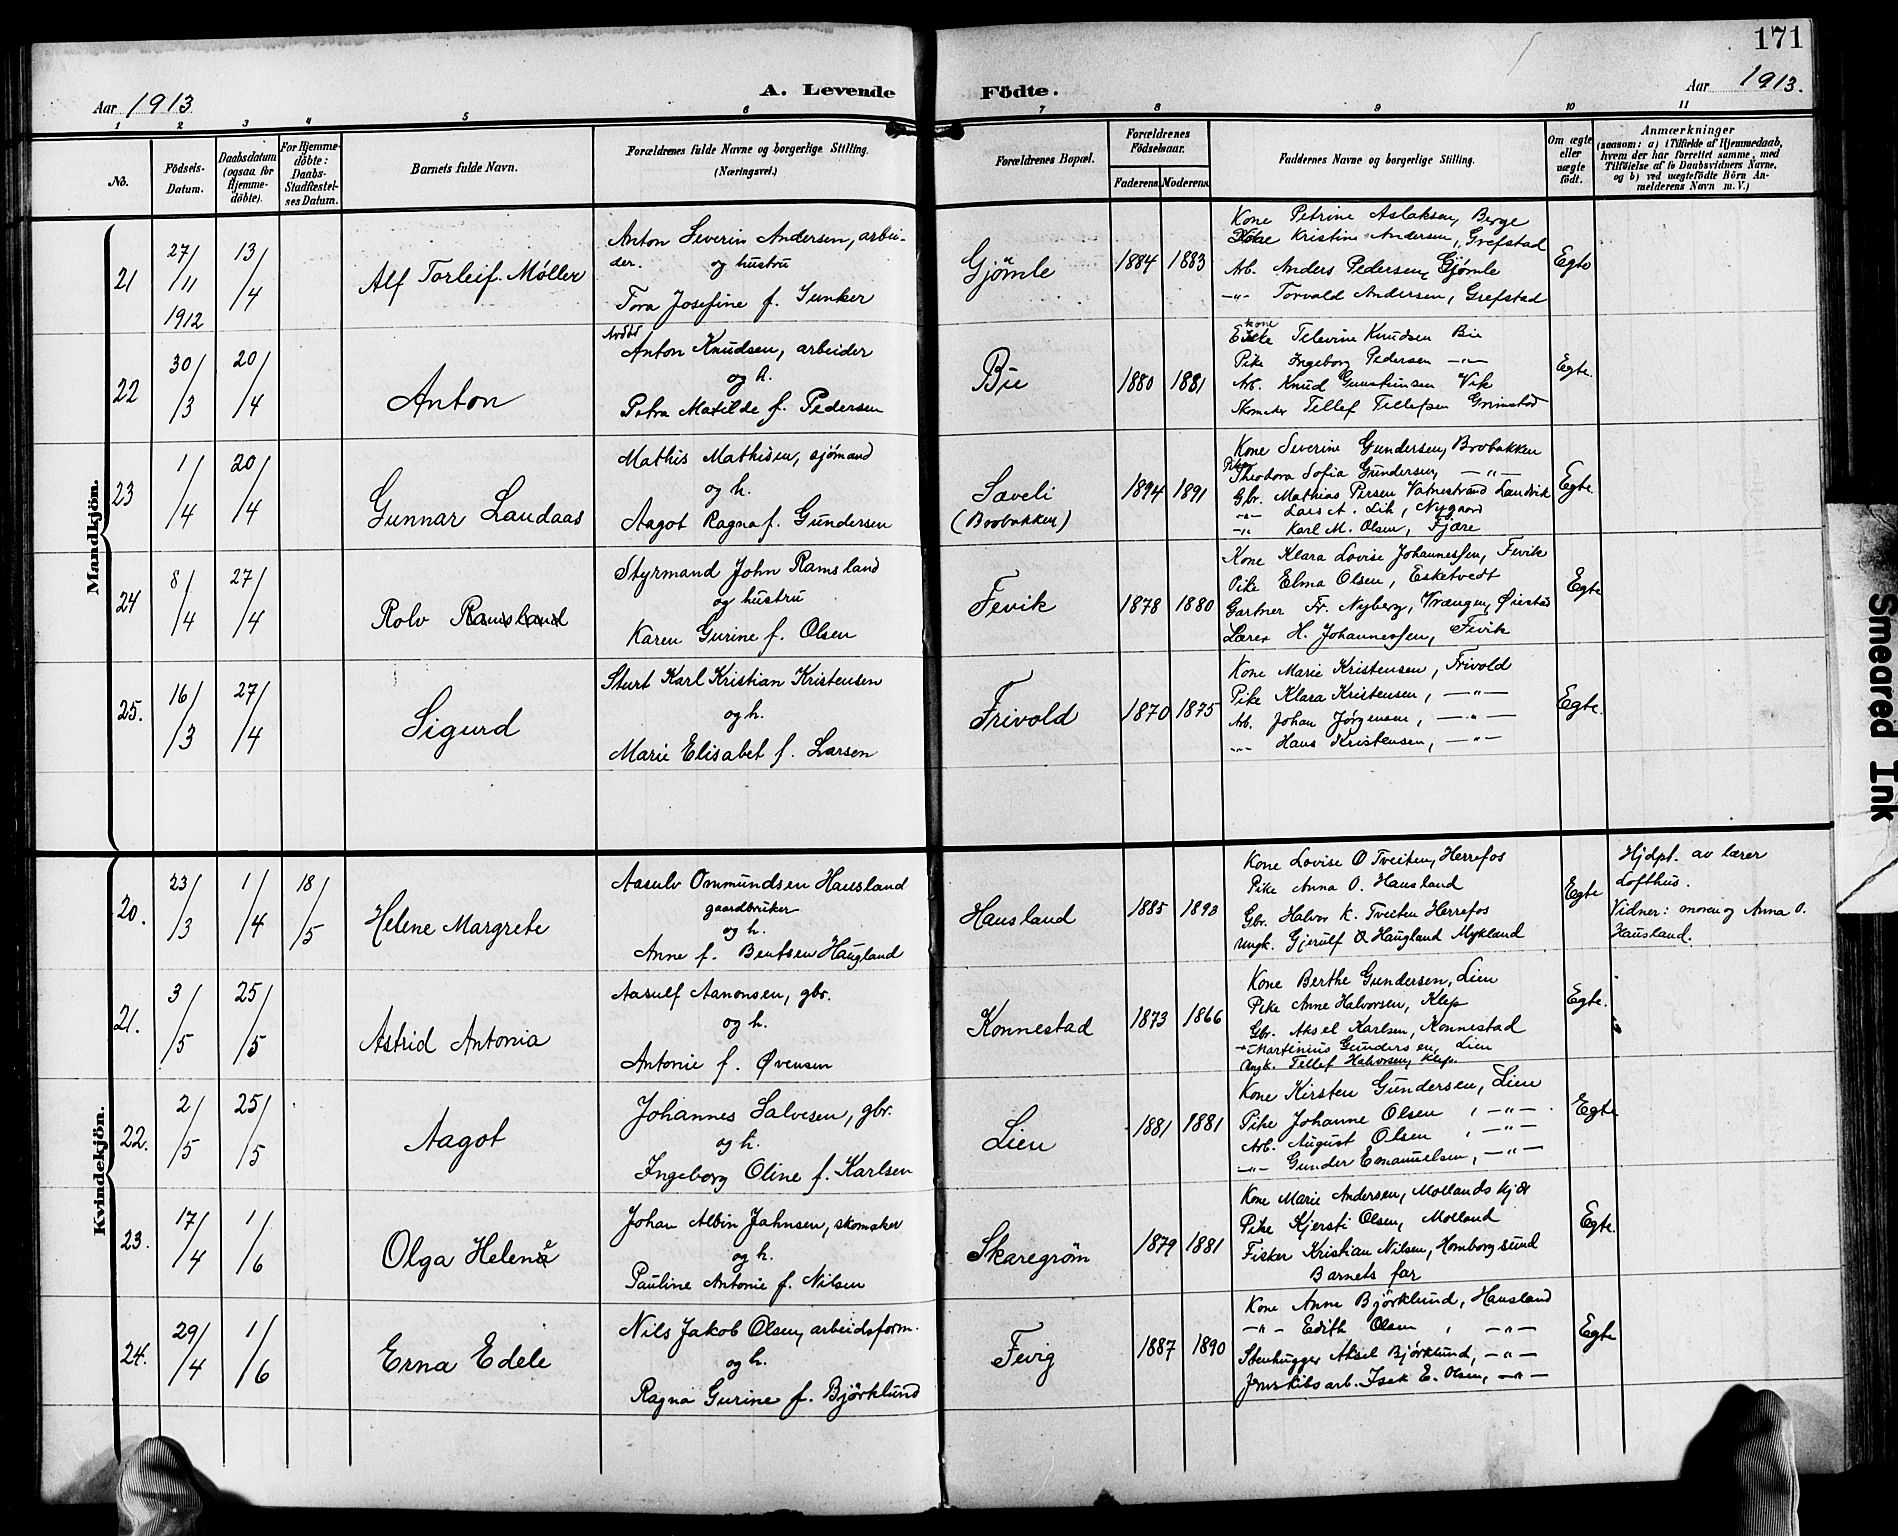 171
Aar 1913
A. Levende
Födte.
Aar 1913.
1 2 3 4 5 6 7 8 9 10 11
No.
Födsels-
Datum.
Daabsdatum
(ogsaa for
Hjemme-
döbte).
For Hjemme-
döbte:
Daabs-
Stadfæstel-
ses Datum.
Barnets fulde Navn.
Forældrenes fulde Navne og borgerlige Stilling.
(Næringsvei.)
Forældrenes Bopæl.
Forældrenes
Födselsaar.
Faderens. Moderens.
Faddernes Navne og borgerlige Stilling.
Om ægte
eller
uægte
födt.
Anmærkninger
(saasom: a) i Tilfælde af Hjemmedaab,
hvem der har forrettet samme, med
Tilföielse af to Daabsvidners Navne,
og b) ved uægtefödte Börn An-
melderens Navn m. V.)
Mandkjön.
21
27/11 1912
13/4
Alf Torleif Møller
Anton Severin Andersen, arbei-
der. og hustru
Tora Josefine f. Junker
Gjömle
1884 1883
Kone Petrine Aslaksen, Berge
Kristine Andersen, Grefstad
Arb. Anders Pedersen, Gjømle
-"- Torvald Andersen, Grefstad
Egte
22
30/3
20/4
Anton
Anton Knudsen, arbeider
og h.
Petra Matilde f. Pedersen
Bie
1880 1881
kone
Televine Knudsen Bie
Pike Ingeborg Pedersen -"-
Arb. Knud Gunsteinsen Vik
Tellef Tellefsen Grimstad
Egte.
23
1/4
20/4
Gunnar Landaas
Mathis Mathisen, sjömand
og h.
Aagot Ragna f. Gundersen
Saveli
(Brobakken)
1894 1891
Kone Severine Gundersen, Brobakken
Pike
Theodora Sofia Gundersen, -"-
Gbr. Mathias Persen Vatnestrand Landvik
-"- Lars A. Lih, Nygaard
-"- Karl M. Olsen, Fjære
Egte
24
8/4
27/4
Rolv Ramsland
Styrmand John Ramsland
og hustru
Karen Gurine f. Olsen
Fevik
1878 1880
Kone Klara Lovise Johannessen, Fevik
Pike Elma Olsen, Esketvedt
Gartner Fr. Nyberg, Vrængen, Øiestad
Lærer H. Johannessen, Fevik
Egte
25.
16/3
27/4
Sigurd
Sturt Karl Kristian Kristensen
og h.
Marie Elisabet f. Larsen
Frivold
1870 1875
Kone Marie Kristensen, Frivold
Pike Klara Kristensen, -"-
Arb. Johan Jørgensen, -"-
-"- Hans Kristensen, -"-
Egte.
Kvindekjön.
20.
23/3
1/4
18/5
Helene Margrete
Aasulv Ommundsen Hausland
gaardbruker
og h.
Anne f. Bentsen Haugland
Hausland
1885 1893
Kone Lovise O Tveiten, Herrefos
Pike Anna O. Hausland
Gbr. Halvor K. Tveiten Herrefos
Ungk. Gjerulf O Haugland Mykland
Egte
Hjdpt. av lærer
Lofthus.
Vidner: moren og Anna O.
Hausland.
21.
3/5
25/5
Astrid Antonia
Aasulf Aanonsen, gbr.
og h.
Antonie f. Øvensen
Konnestad
1873 1866
Kone Berthe Gundersen, Lien
Pike Anne Halvorsen, Klep
Gbr. Aksel Karlsen, Konnestad
-"- Martinius Gundersen, Lien
Ungk. Tellef Halvorsen, Klep.
Egte.
22.
2/5
25/5
Aagot
Johannes Salvesen, gbr.
og h.
Ingeborg Oline f. Karlsen
Lien
1881 1881
Kone Kirsten Gundersen, Lien
Pike Johanne Olsen, -"-
Arb. August Olsen, -"-
-"- Gunder Emanuelsen, -"-
Egte
23.
17/4
1/6
Olga Helene
Johan Albin Jahnsen, skomaker
og h.
Pauline Antonie f. Nilsen
Skaregrøn
1879 1881
Kone Marie Andersen, Mollandskjær
Pike Kjersti Olsen, Molland
Fisker Kristian Nilsen, Homborgsund
Barnets far
Egte.
24.
29/4
1/6
Erna Edele
Nils Jakob Olsen, arbeidsform.
og h.
Ragna Gurine f. Björklund
Fevig
1887 1890
Kone Anne Björklund, Hausland
-"- Edith Olsen, -"-
Stenhugger Aksel Bjørklund, -"-
Jernskibsarb. Isak E. Olsen, -"-
Egte
Smeared Ink